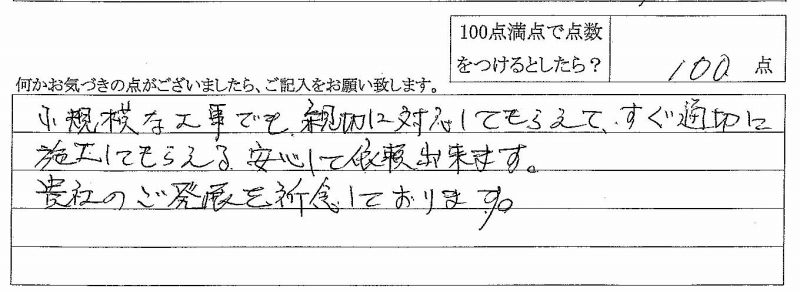 100点満点で点数
をつけるとしたら？
100 点
何かお気づきの点がございましたら、ご記入をお願い致します。
小規模な工事でも、親切に対応してもらえて、すぐ適切に
施工してもらえる、安心して依頼出来ます。
貴社のご発展を祈念しております。